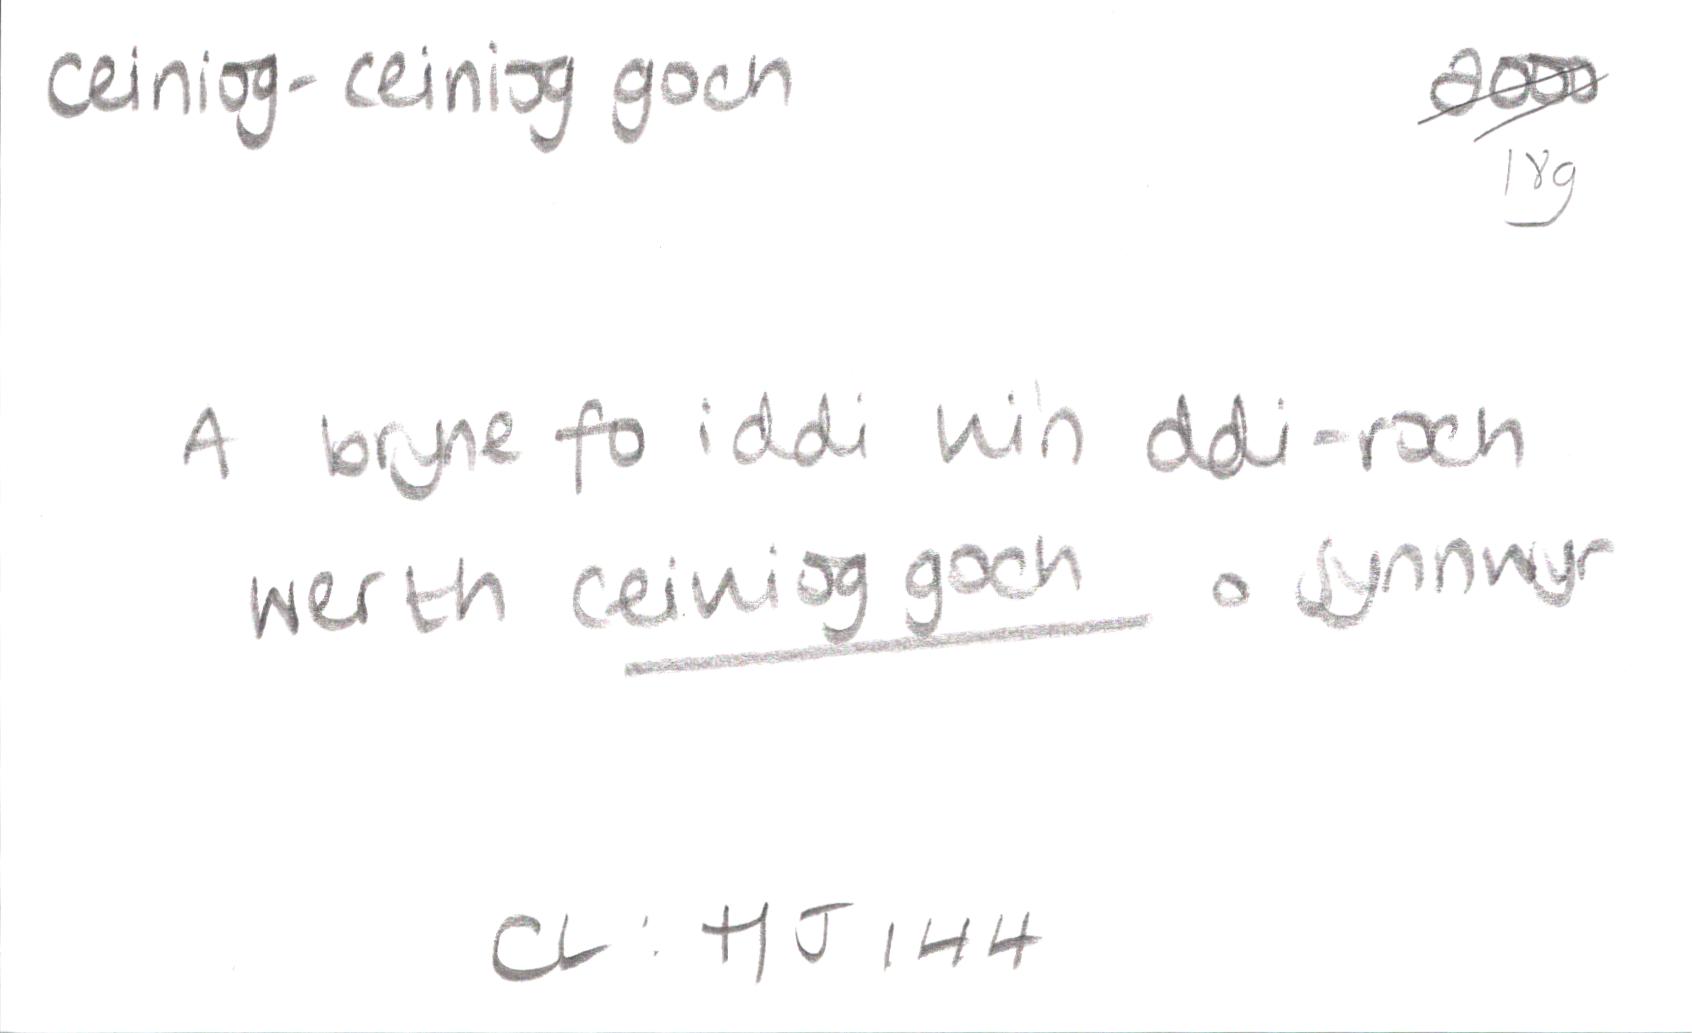 ceiniog - ceiniog goch
2000
18g
A bryne fo iddi win ddi-roch
werth ceiniog goch o synnwyr
CL: HJ 144